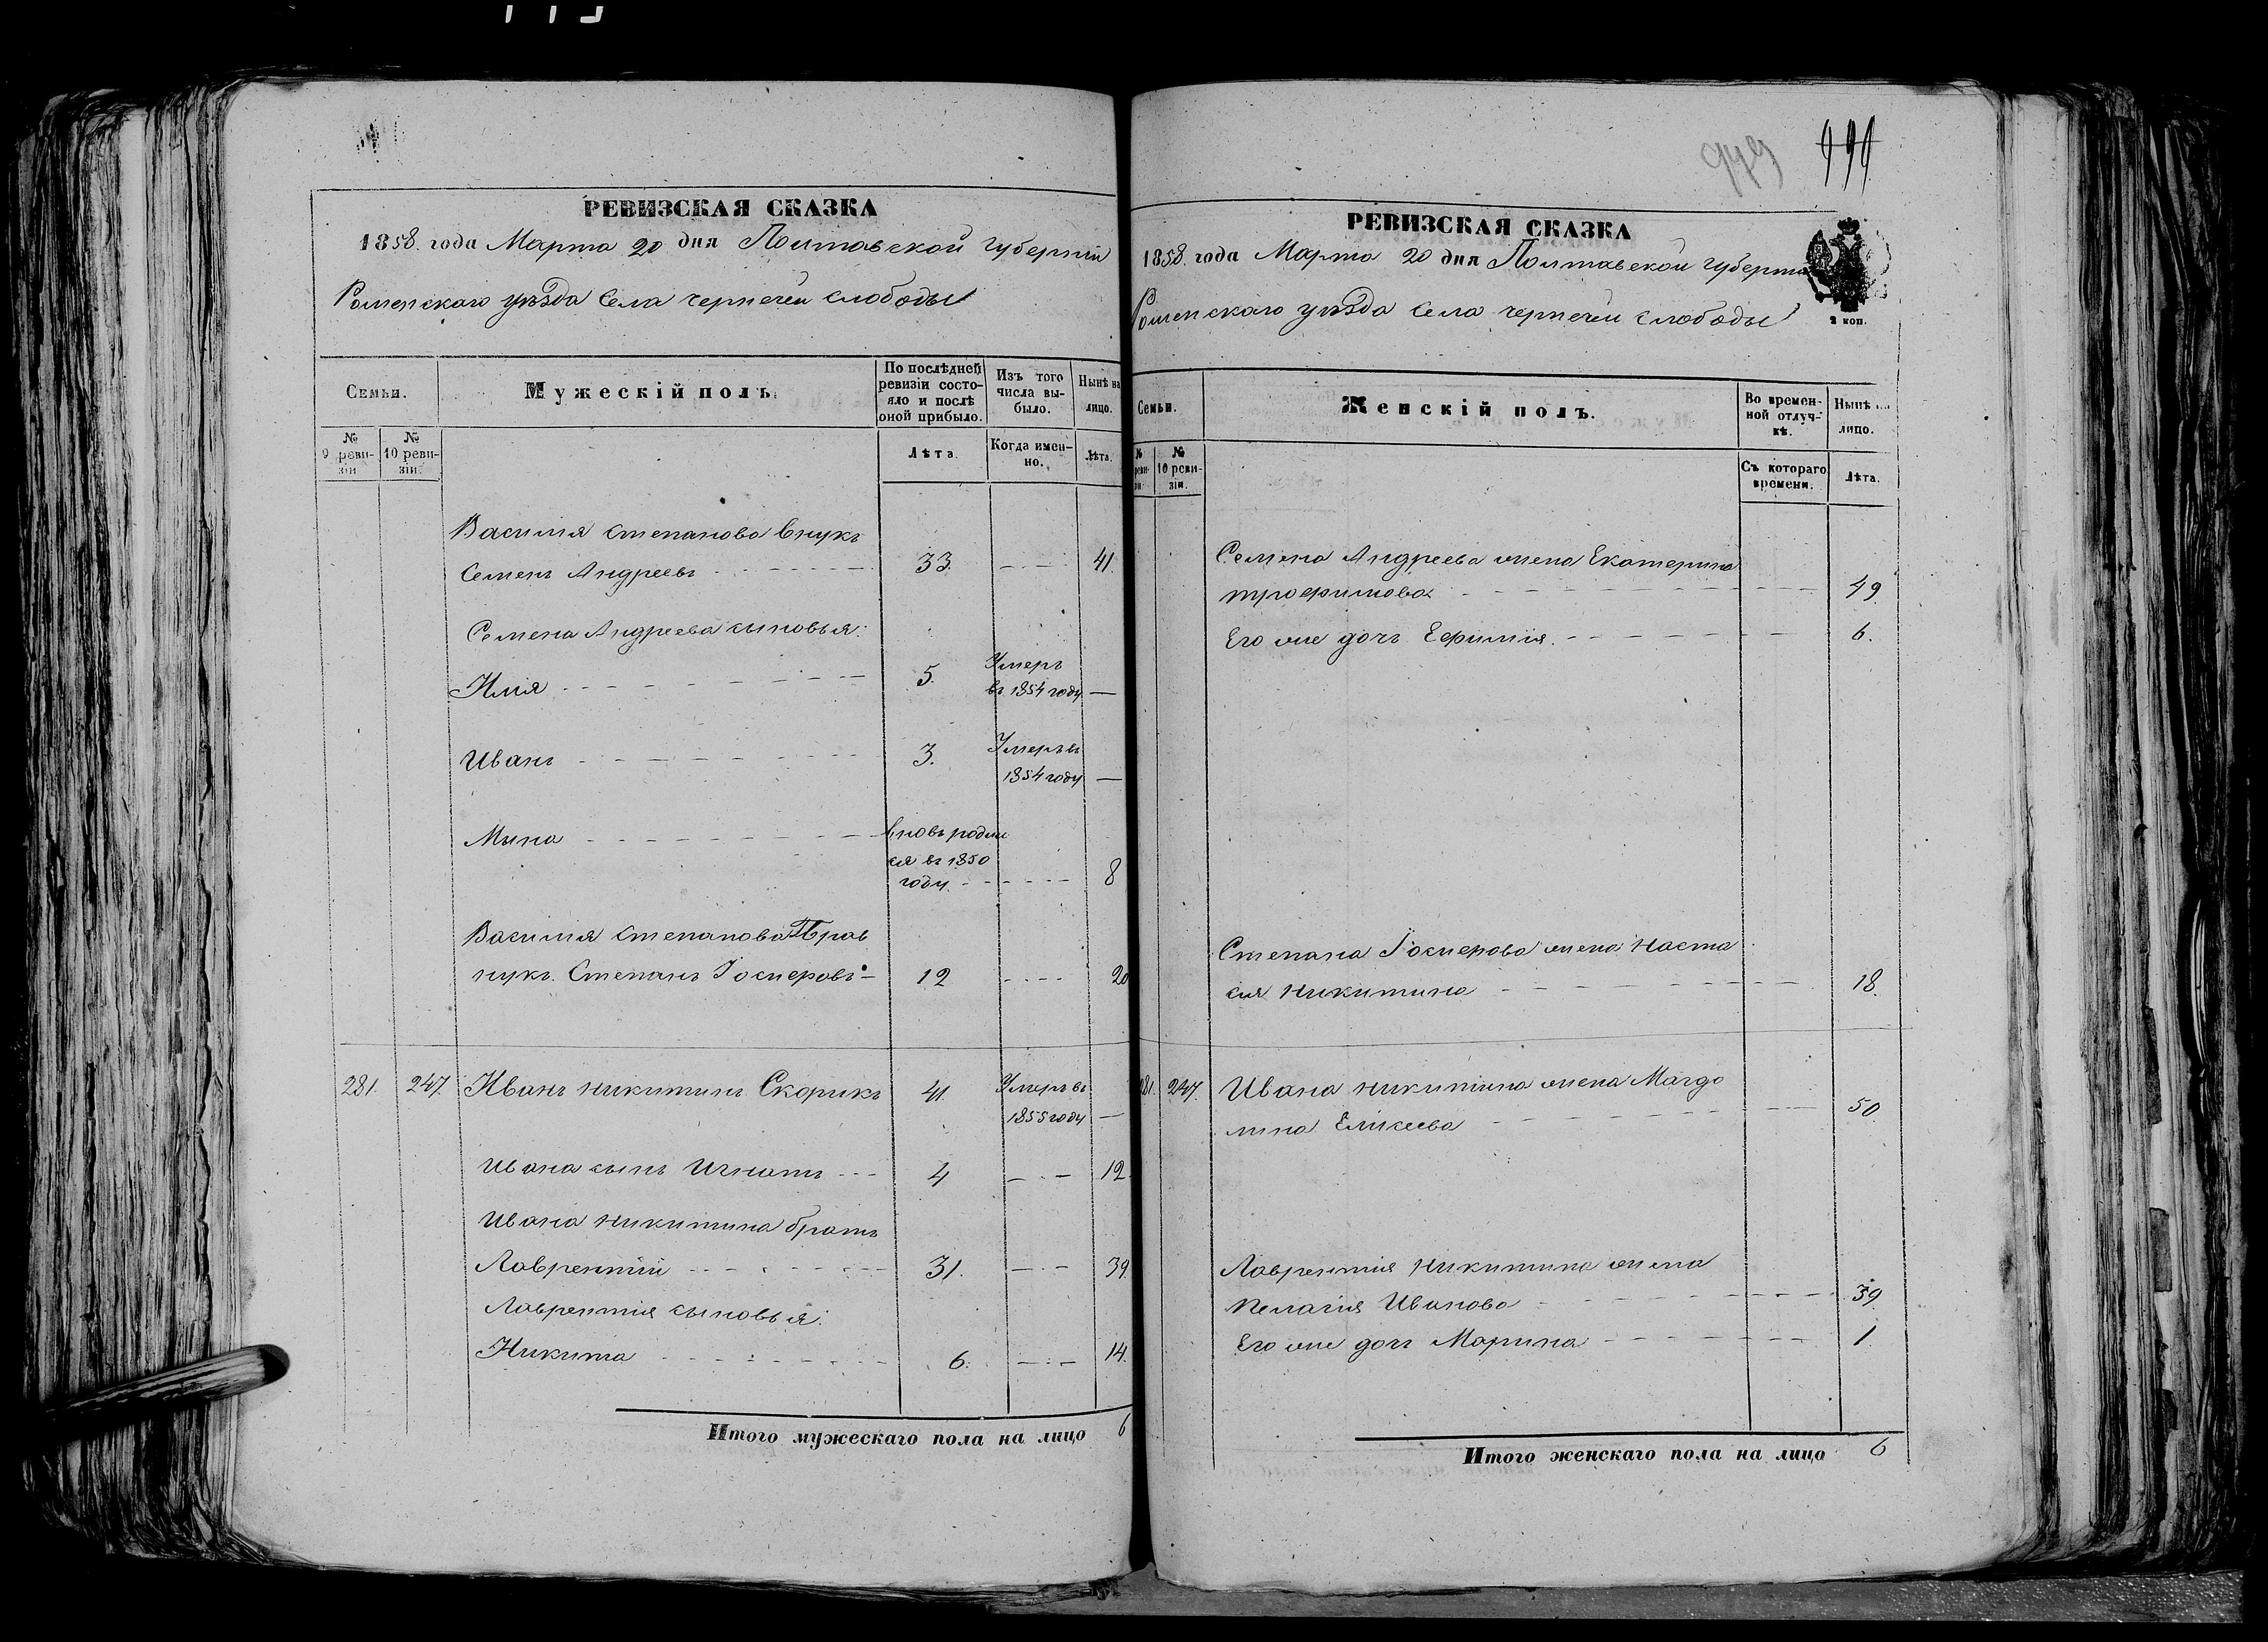 979 999
РЕВИЗСКАЯ СКАЗКА
1858. года Марта 20 дня Полтавской губерніи
Роменскаго уѣзда села чернечей слободы
Семьи.
Мужескій полъ.
По послѣдней ревизіи состояло и послѣ оной прибыло.
Изъ того числа выбыло.
Нынѣ на лицо.
№ 9 ревизіи
№ 10 ревизіи.
Лѣта
Когда именно.
Лѣта.
Василія степанова внукъ
Семенъ Андреевъ 33. 41.
Семена Андреева сыновья:
Илія 5. Умеръ
въ 1854 году —
Иванъ 3. Умеръ въ
1854 году —
Мина вновь родил
ся въ 1850
году. 8
Василія степанова Прав
нукъ. Степанъ Іосиеровъ 12 20
281. 247. Иванъ никитинъ Скорикъ 41 Умеръ въ
1855 году —
Ивана сынъ Игнатъ 4 12.
Ивана никитина братъ
Лаврентій 31. 39.
Лаврентія сыновья:
Никита 6. 14.
Итого мужескаго пола на лицо 6
РЕВИЗСКАЯ СКАЗКА
1858. года Марта 20 дня Полтавской губерніи
2 коп.
Роменскаго уѣзда села чернечей слободы
Семьи.
Женскій полъ.
Во временной отлучкѣ.
Нынѣ на лицо.
№ реви зіи
№ 10 ревизіи.
Съ котораго времени.
Лѣта.
Семена Андреева жена Екатерина
трофимова 49.
Его же дочь Ефимія. 6.
Степана Іосиерова жена Наста
сия Никитина 18.
281. 247. Ивана никитина жена Магда
лина Еликеева 50.
Лаврентія Никитина жена
Пелагія Иванова 39
Его же дочь Марина 1.
Итого женскаго пола на лицо 6